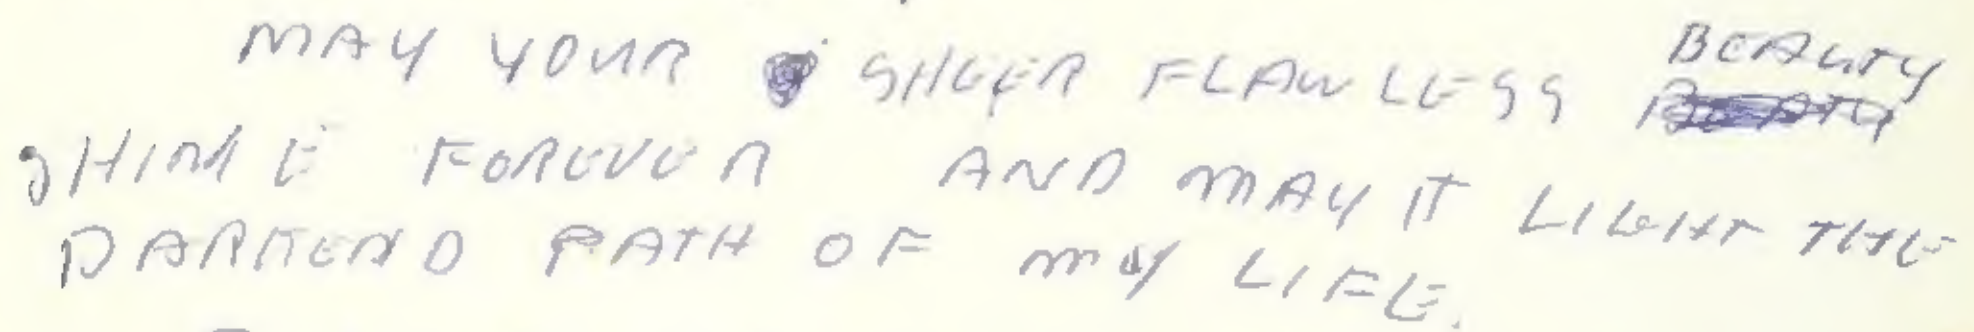 MAY YOUR SHEER FLAWLESS BEAUTY
SHINE FOREVER AND MAY IT LIGHT THE
DARKEND PATH OF MY LIFE.